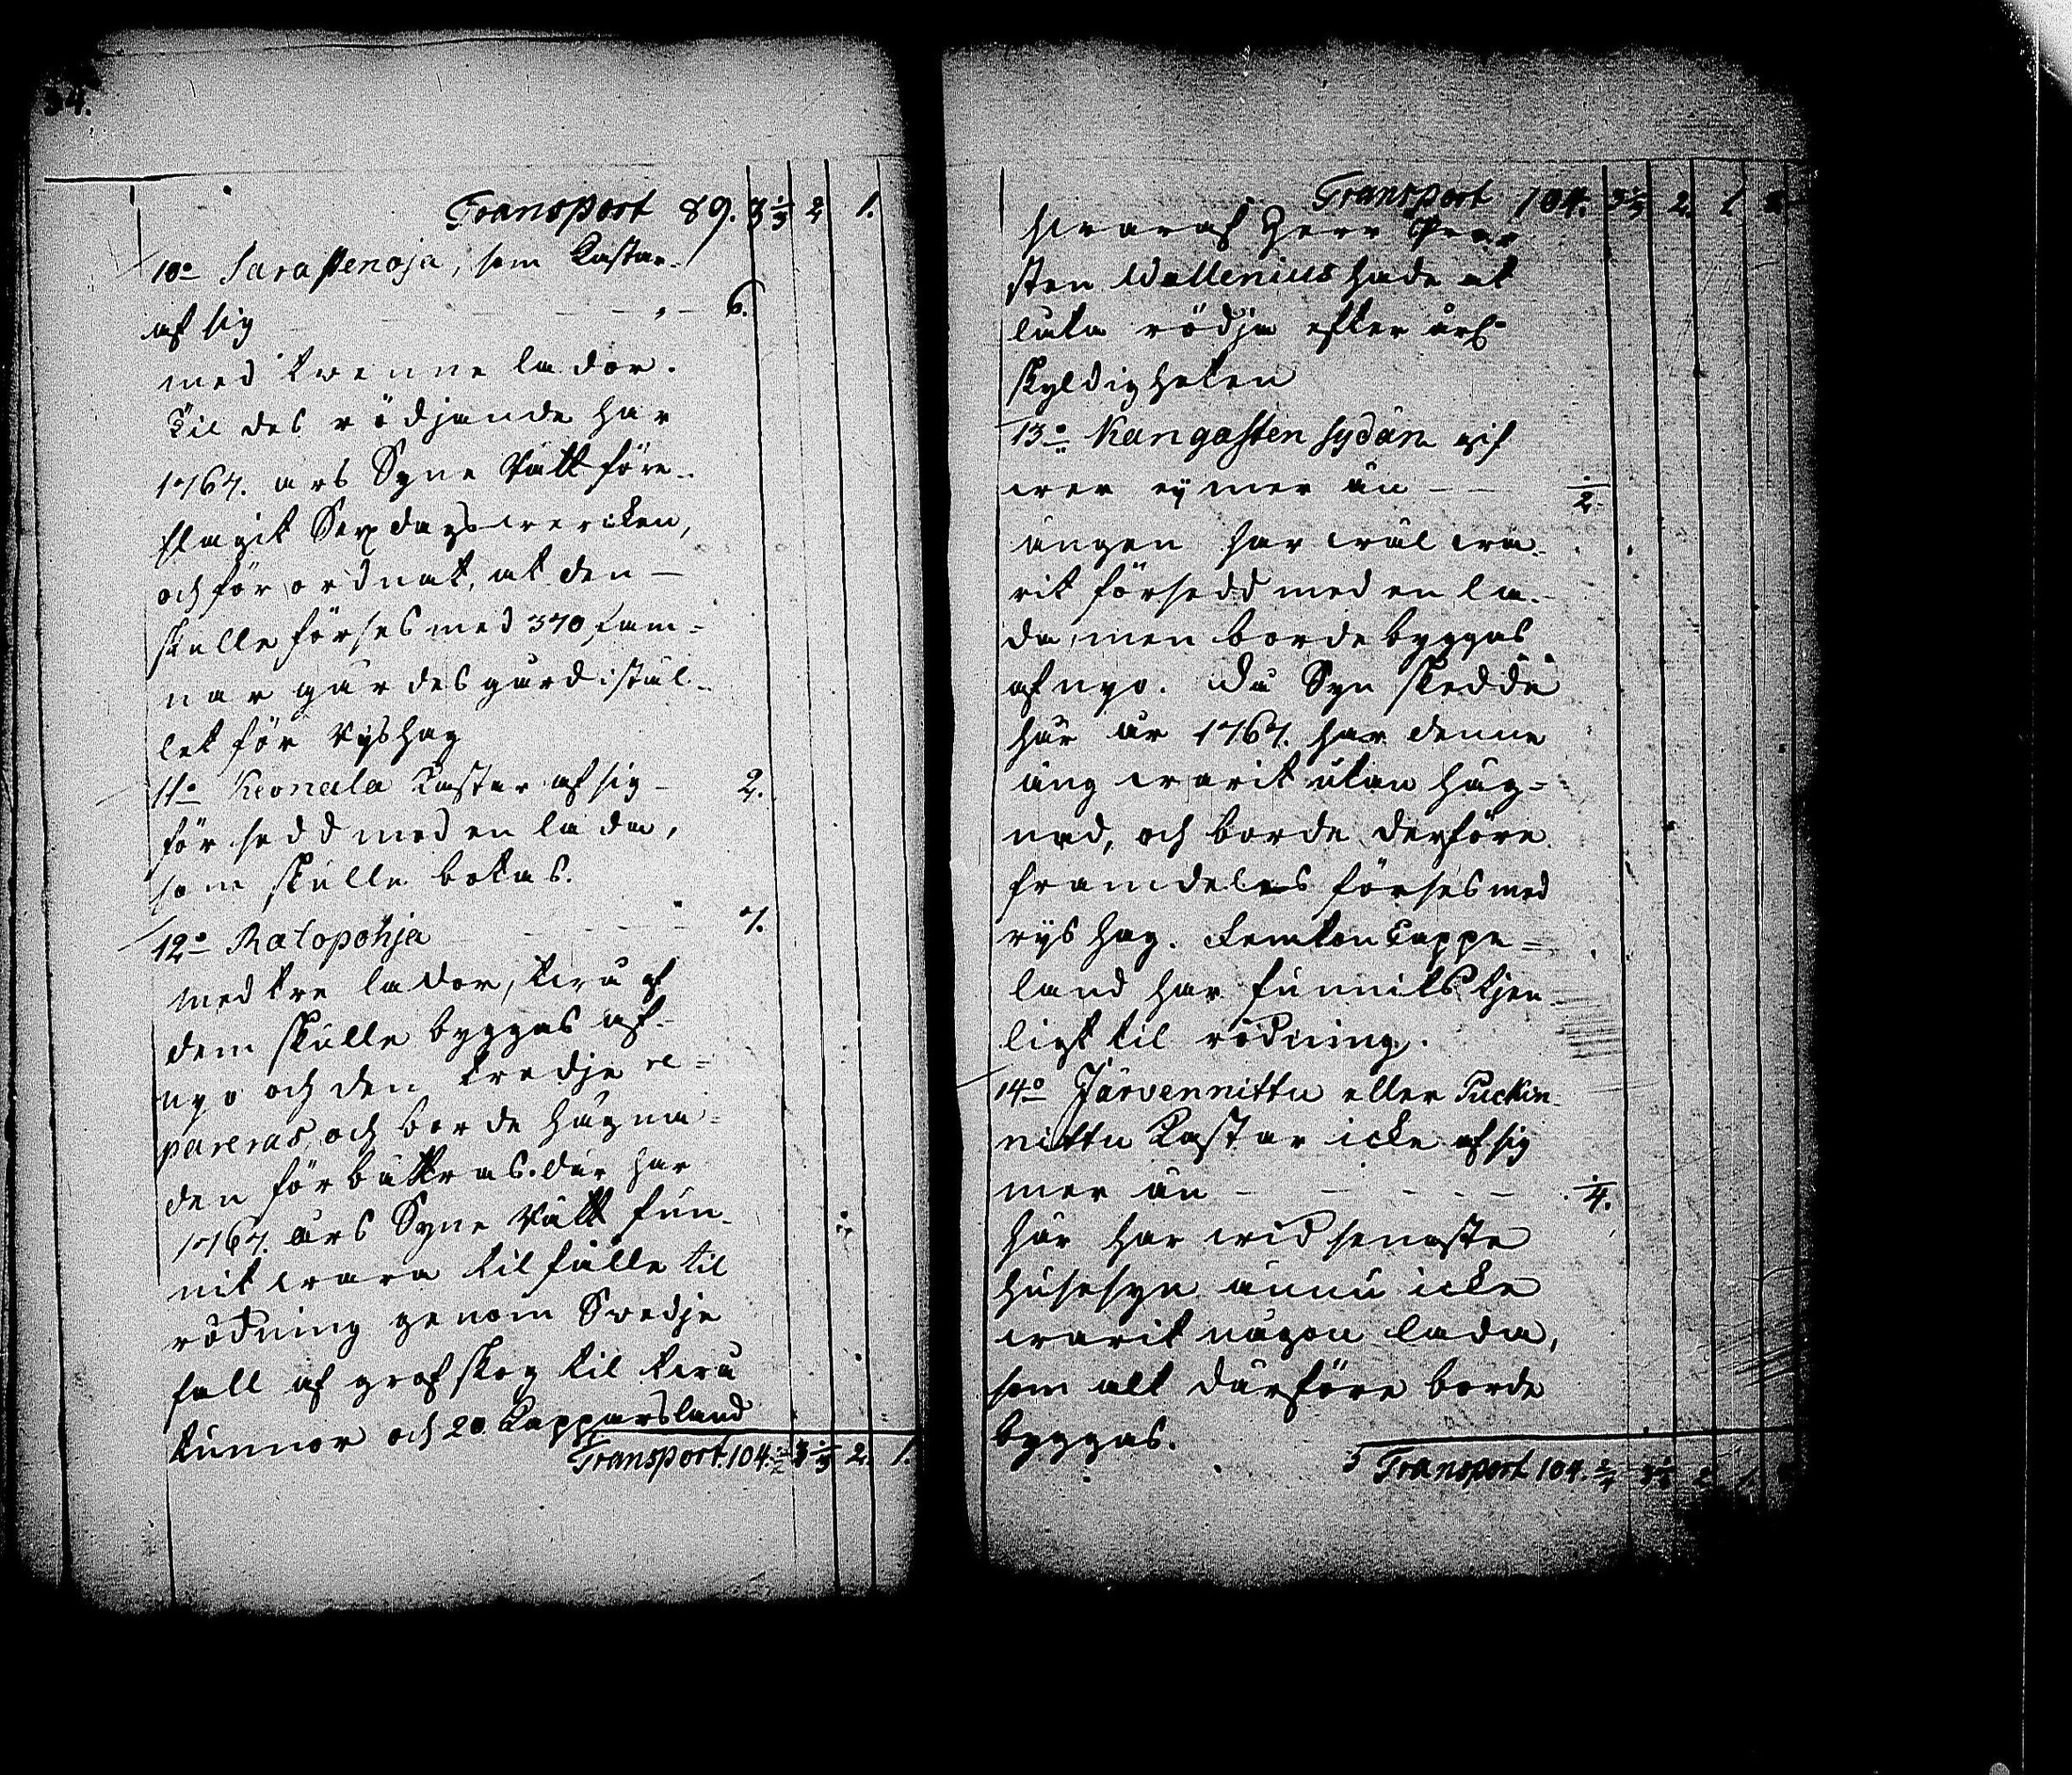 34.
Transport 89. 3 1/3 2 1.
10o Sarassenoja, som kastar
af sig 6.
med twenne lador.
Til des rödjande har
1767. års Syne Rätt före-
slagit Sex dagswercken,
och förordnat, at den
skulle förses med 370 fam=
nar gärdesgård i stäl-
let för Ryshag
11o Keonala kastar af sig 2.
försedd med en lada,
som skulle botas.
12o Ratopohja 7.
med tre lador, twå af
dem skulle byggas af
nyo och den tredje re=
pareras, och borde hägna=
den förbättras. där har
1767. års Syne Rätt fun-
nit wara tilfälle til
rödning genom Swedje
fall af grof skog til twå
tunnor och 20 Kapparsland
Transport. 104. 1/2 3 1/3 2. 1.
Transport 104. 3 1/3 2. 1
hwaraf Herr Pro-
sten Wallenius hade at
låta rödja efter årl.
skyldigheten
13o Kangasten sydän gif
wer ey mer än 1/2.
ängen har wäl wa-
rit försedd med en la-
da, men borde byggas
af nyo. Då Syn skedde
här år 1767. har denne
äng warit utan häg=
nad, och borde derföre
framdeles förses med
rys hag. Femton Cappe=
land har funnits tjen-
ligt til rödning.
14o Järvennittu eller Puckin-
nittu kastar icke af sig
mer än 1/4.
här har wid senaste
husesyn ännu icke
warit någon lada,
som alt därföre borde
byggas.
Transport 104. 3/4 3 1/3 2 1